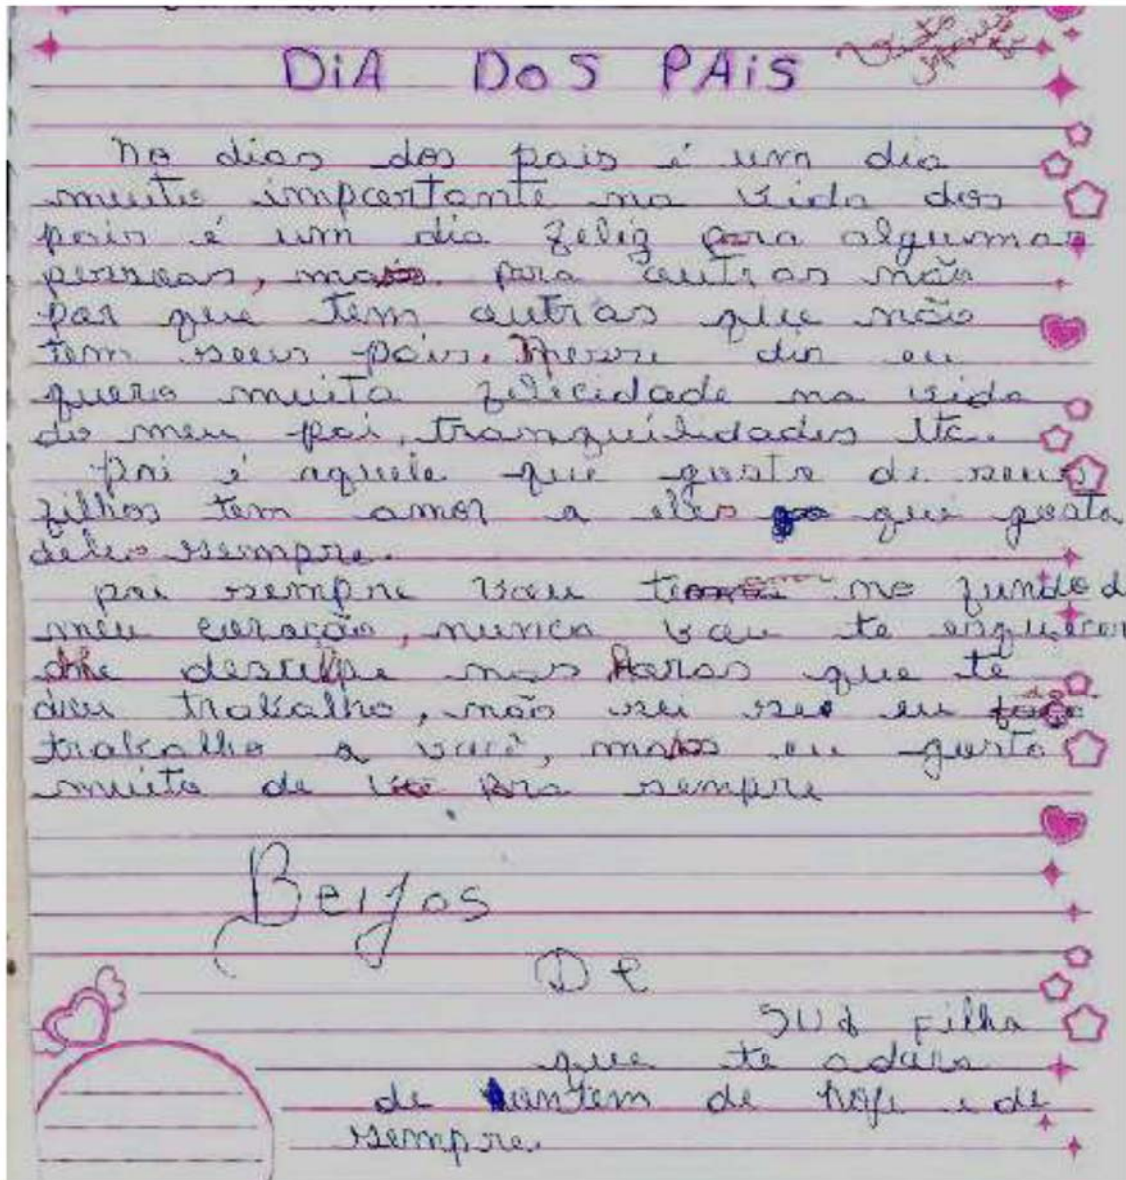 DiA DoS PAiS
No dias dos pais é um dia
muito importante na vida dos
pais é um dia feliz para algumas
pessoas, mais para outras não
por que tem outras que não
tem seus pais. Nesse dia eu
quero muita felicidade na vida
do meu pai, tranquilidades etc.
Pai é aquele que gosta de seus
filhos tem amor a eles que gosta
deles sempre.
pai sempre vou no fundo d
meu coração, nunca vou te esquecer
me desculpe nas horas que te
dou trabalho, não sei se eu
trabalho a você, mais eu gosto
muito de pra sempre
Beijos
De
SUA Filha
que te adora
de ontem de hoje e de
sempre.